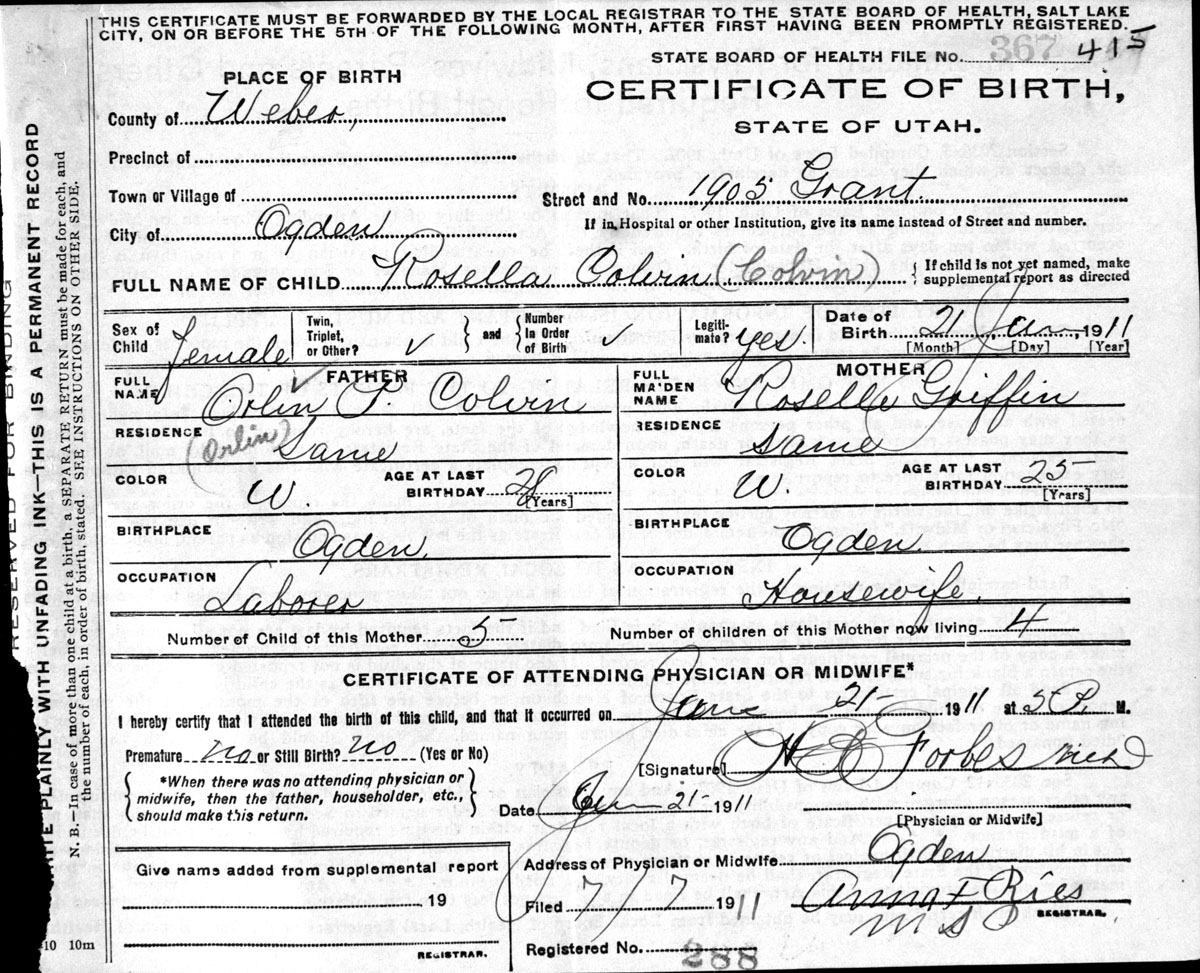 THIS CERTIFICATE MUST BE FORWARDED BY THE LOCAL REGISTRAR TO THE STATE BOARD OF HEALTH, SALT LAKE
CITY, ON OR BEFORE THE 5TH OF THE FOLLOWING MONTH, AFTER FIRST HAVING BEEN PROMPTLY REGISTERED.
STATE BOARD OF HEALTH FILE No. 367 415
PLACE OF BIRTH
CERTIFICATE OF BIRTH,
STATE OF UTAH.
County of Weber,
Precinct of
Town or Village of
Street and No. 1905 Grant.
City of Ogden
If in Hospital or other Institution, give its name instead of Street and number.
FULL NAME OF CHILD Rosella Colvin (Colvin)
If child is not yet named, make
supplemental report as directed
Sex of
Child female
Twin,
Triplet,
or Other? ✓
and
Number
In Order
of Birth ✓
Legiti-
mate? yes.
Date of
Birth 21 Jan 1911
[Month] [Day] [Year]
FATHER
FULL
NAME Orlin P. Colvin
MOTHER
FULL
MAIDEN
NAME Roselle Griffin
RESIDENCE
(Orlin) Same
RESIDENCE
Same
COLOR W.
AGE AT LAST
BIRTHDAY 28
[Years]
COLOR W.
AGE AT LAST
BIRTHDAY 25
[Years]
BIRTHPLACE
Ogden
BIRTHPLACE
Ogden.
OCCUPATION
Laborer
OCCUPATION
Housewife.
Number of Child of this Mother 5
Number of children of this Mother now living 4
CERTIFICATE OF ATTENDING PHYSICIAN OR MIDWIFE*
I hereby certify that I attended the birth of this child, and that it occurred on 21 1911 at 5 P. M.
Premature no or Still Birth? no (Yes or No)
*When there was no attending physician or
midwife, then the father, householder, etc.,
should make this return.
[Signature] Forbes
Date 21 1911
[Physician or Midwife]
Give name added from supplemental report
19
REGISTRAR.
Address of Physician or Midwife Ogden
Filed 7/7 1911 Anna F Ries
REGISTRAR.
Registered No. 288
RESERVED FOR BINDING
WRITE PLAINLY WITH UNFADING INK—THIS IS A PERMANENT RECORD
N. B.—In case of more than one child at a birth, a SEPARATE RETURN must be made for each, and
the number of each, in order of birth, stated. SEE INSTRUCTIONS ON OTHER SIDE.
10 10m